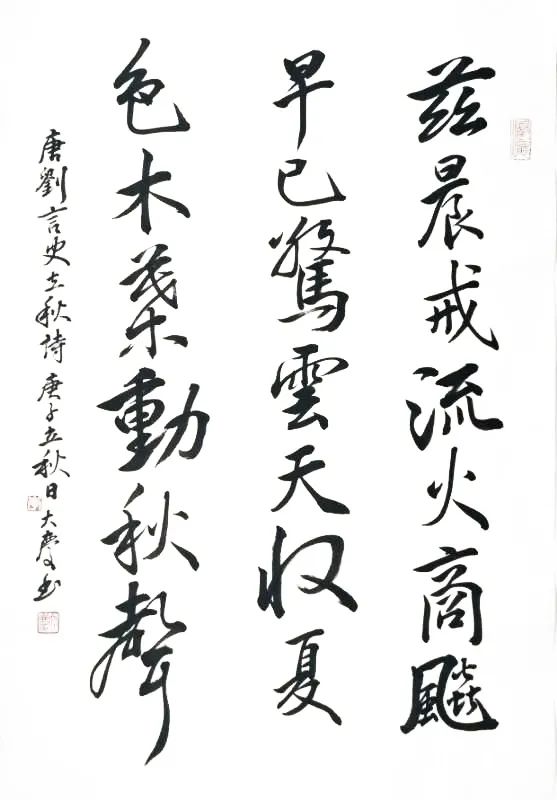 兹晨戒流火商飈
早已驚雲天收夏
色木葉動秋聲
唐劉言史立秋詩 庚子立秋日大慶書